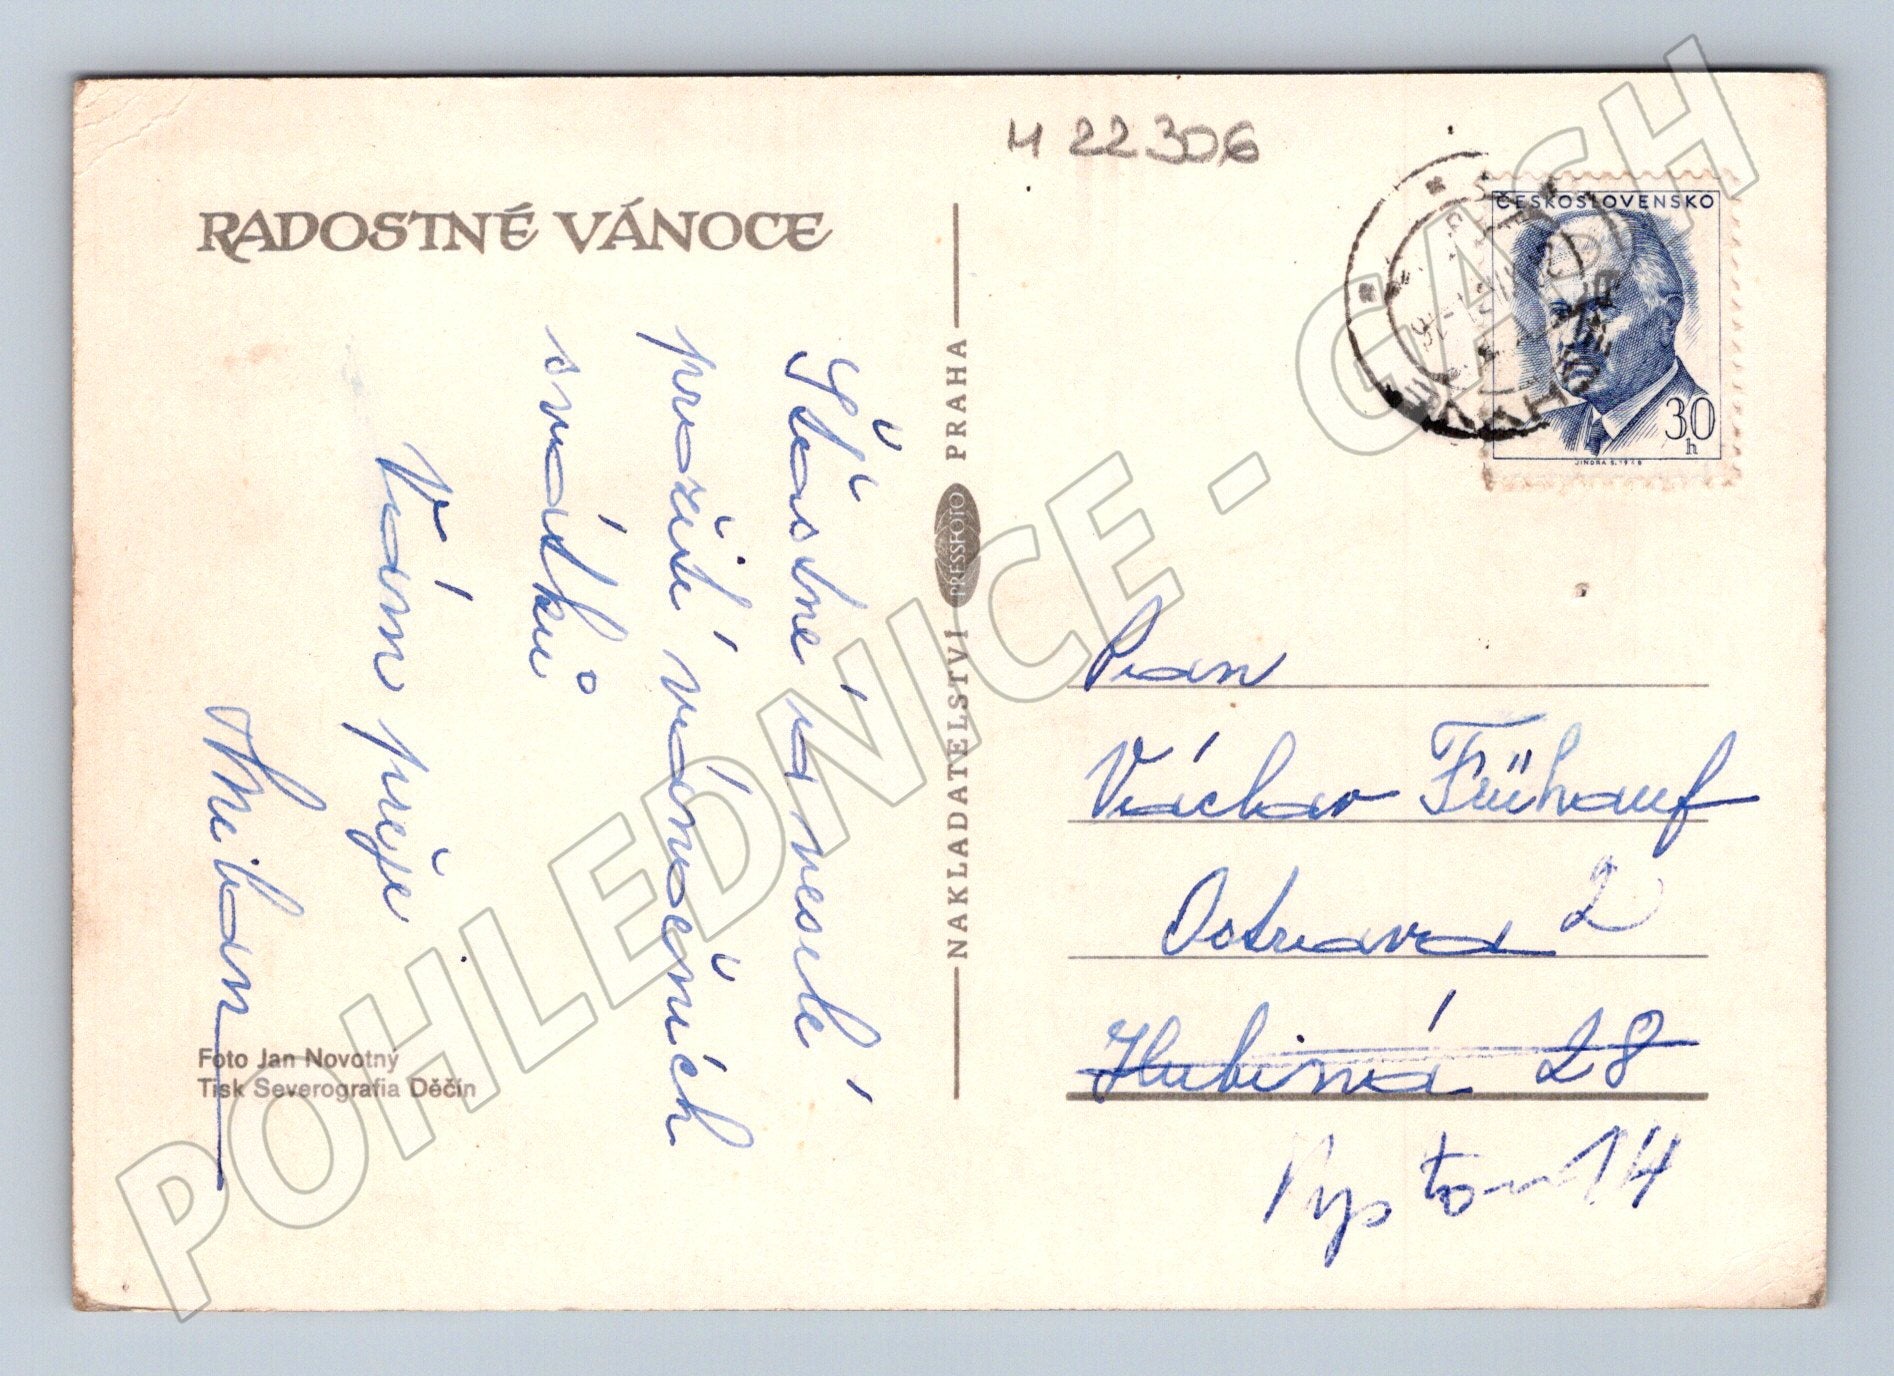 H 22306
RADOSTNÉ VÁNOCE
Šťastné a veselé
prožití vánočních
svátků
Vám přeje
Foto Jan Novotný
Tisk Severografia Děčín
NAKLADATELSTVÍ PRESSFOTO PRAHA
ČESKOSLOVENSKO
30
h
JINDRA S. 1948
Pan
Václav Frühauf
Ostrava 2
Hlubinná 28
14
POHLEDNICE - GASH